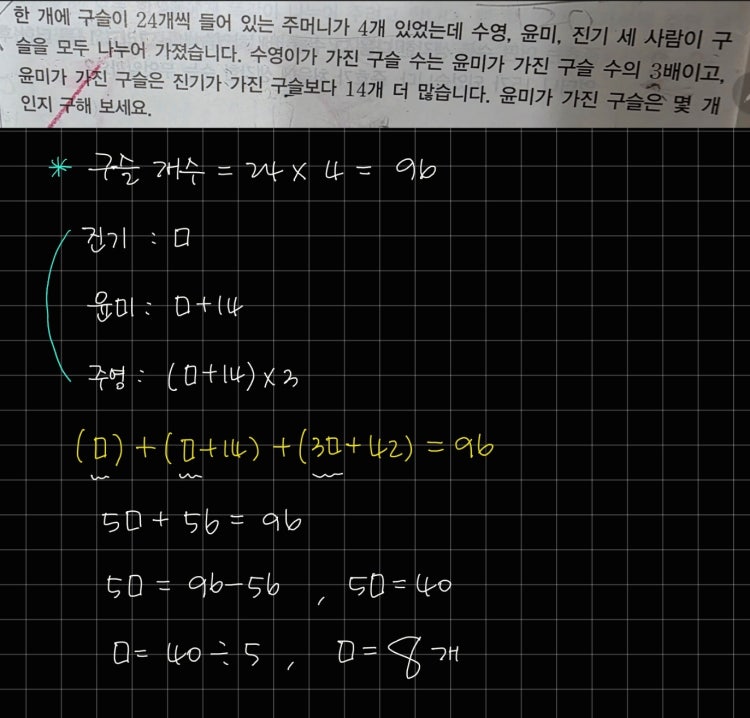 한 개에 구슬이 24개씩 들어 있는 주머니가 4개 있었는데 수영, 윤미, 진기 세 사람이 구
슬을 모두 나누어 가졌습니다. 수영이가 가진 구슬 수는 윤미가 가진 구슬 수의 3배이고,
윤미가 가진 구슬은 진기가 가진 구슬보다 14개 더 많습니다. 윤미가 가진 구슬은 몇 개
인지 구해 보세요.
* 구슬 개수 = 24 × 4 = 96
진기 : □
윤미 : □+14
주영 : (□+14)×3
(□)+(□+14)+(3□+42)=96
5□+56=96
5□=96-56, 5□=40
□=40÷5, □=8개